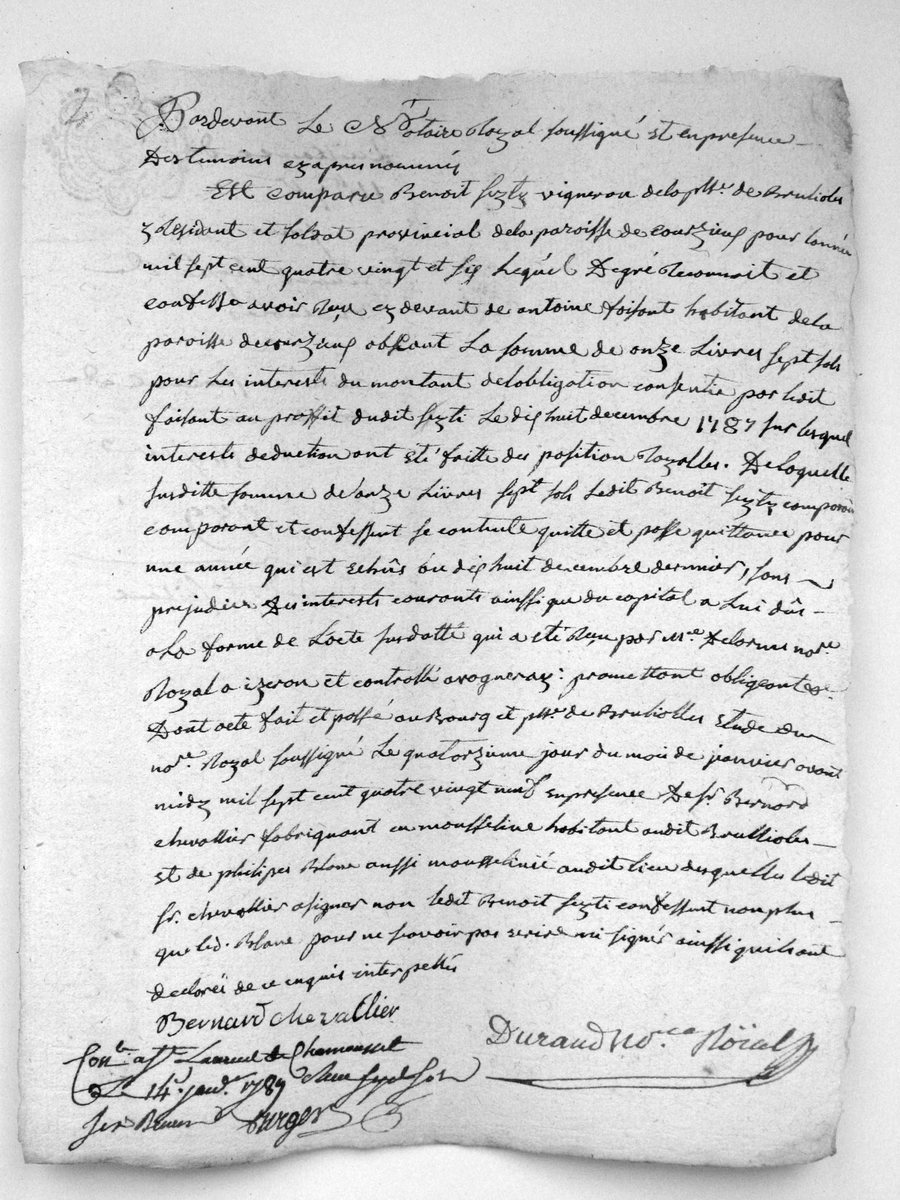 Pardevant Le Notaire Royal soussigné Et enpresence
Des temoins cyapres nommés
Est comparu Benoit vigneron dela psse. de Brulioles
y Residant et soldat provincial dela paroisse de courzieu pour lannée
mil sept cent quatre vingt et six Lequel Degré Reconnoit et
confesse avoir Reçu cy devant de antoine foisant habitant dela
paroisse decourzieu absant La somme de onze Livres sept sols
pour Les interests du montant delobligation consentie par Ledit
foisant au proffit dudit Le dix huit decembre 1787 sur lesquel
interests deduction ont eté faitte des position Royalles. De laquelle
susditte somme de onze Livres sept sols Ledit Benoit
comparant et confessant se contente quitte et passe quittance pour
une année qui est echûs du dix huit decembre dernier, sans
prejudice Des interests courants ainssique du capital a Lui dûs
a La forme de Lacte susdatté qui a eté Reçu par Me. Delorme nore.
Royal a izeron et controllé avogneray: promettant obligeant &a.
Dont acte fait et passé au Bourg et psse. de Brulliolles Etude Du
nore. Royal soussigné Le quatorzieme jour du moi de janvier avant
midy mil sept cent quatre vingt neuf enpresence De sr. Bernard
chevallier fabriquant en mousseline habitant audit Brullioles
et de philipes Blanc aussi mousselinié audit lieu desquelles Ledit
sr. chevallier asigner non Ledit Benoit confessant nonplus
que led. Blanc pour ne scavoir pas ecrire ni signér ainssi quils ont
declarés de ce enquis interpellés
Bernard chevallier
Durand nore. Roïal
Conlé. a st. Laurent de Chamousset
Le 14. janr. 1789 Sept sols
Burger